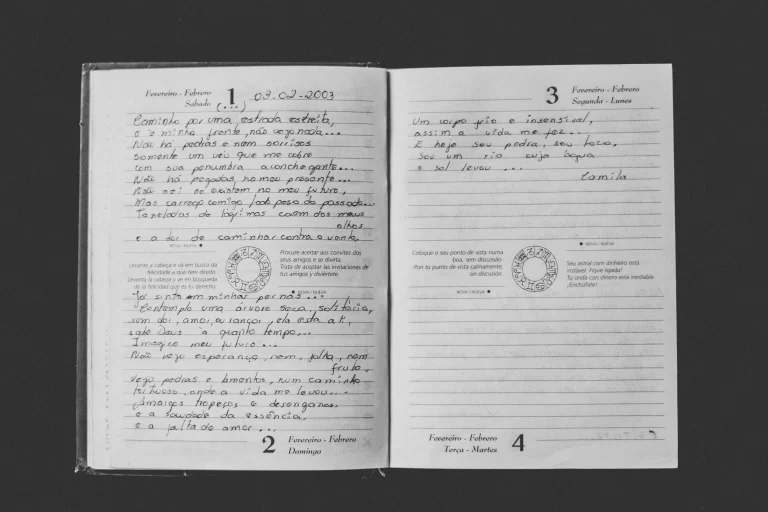 Fevereiro - Febrero
Sabado
1
(...)
03.02-2003
Caminho por uma estrada estreita,
e a minha frente, não vejo nada...
Não há, pedras e nem sorrisos
somente um véu que me cobre
com sua penumbra aconchegante...
Não há pegadas, no meu presente...
Não sei se existem no meu futuro,
Mas carrego comigo todo peso do passado...
Toneladas de lágrimas caem dos meus
olhos
e a dor de caminhar contra o vento
NOVA / NUEVA
Levante a cabeça e vá em busca da
felicidade a que tem direito.
Levanta la cabeza y ve en búsqueda
de la felicidad que es tu derecho.
Procure aceitar aos convites dos
seus amigos e se divirta.
Trata de aceptar las invitaciones de
tus amigos y diviértete.
NOVA / NUEVA
Já sinto em minhas pernas...
Contemplo uma árvore seca, solitária,
sem dor, amor, ou lança, ela está ali,
sabe Deus a quanto tempo...
Imagino meu futuro...
Não vejo esperança, nem, folha, nem
fruto,
vejo pedras e lamentos, num caminho
tortuoso, onde a vida me levou...
Amargos tropeços e desenganos.
e a saudade da essência.
e a falta de amor...
2
Fevereiro - Febrero
Domingo
3
Fevereiro - Febrero
Segunda - Lunes
Um corpo frio e insensível,
assim a vida me fez...
E hoje sou pedra, sou toco,
sou um rio cuja água
o sol levou...
Camila
NOVA / NUEVA
Coloque o seu ponto de vista numa
boa, sem discussão.
Pon tu punto de vista calmamente,
sin discusión.
Seu astral com dinheiro está
instável. Fique ligada!
Tu onda con dinero está inestable.
¡Enchúfate!
NOVA / NUEVA
Fevereiro - Febrero
Terça - Martes
4